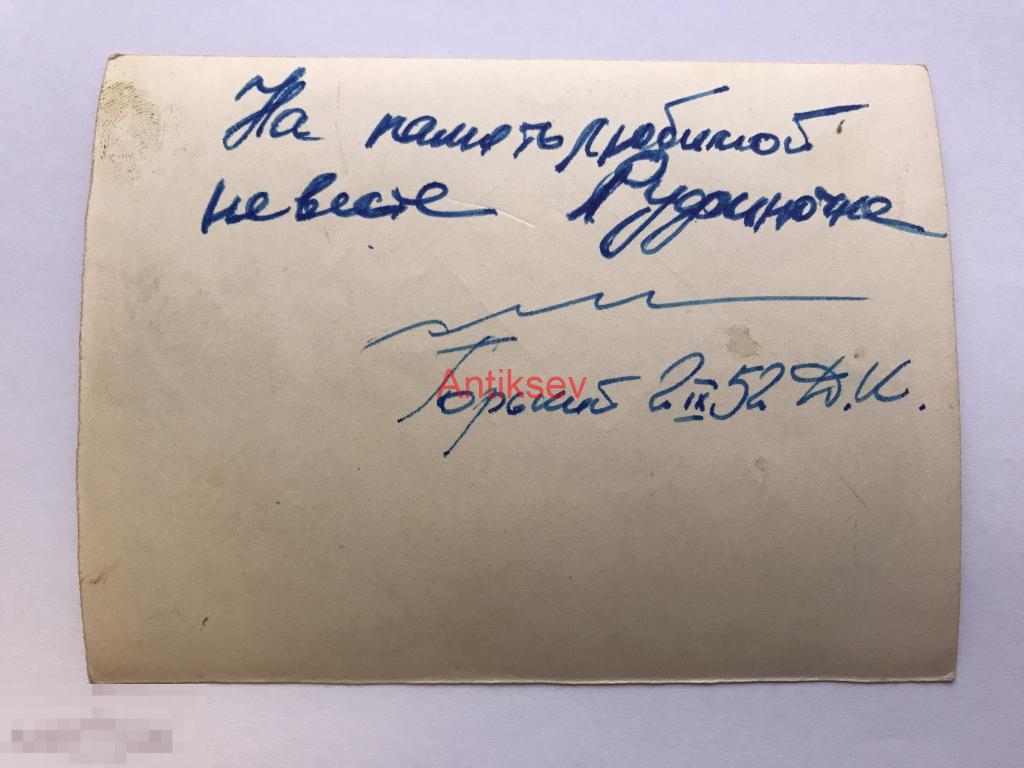 На память любимой
невесте Рудиночке
Горький 2 IX 52 Д.К.
Antiksev